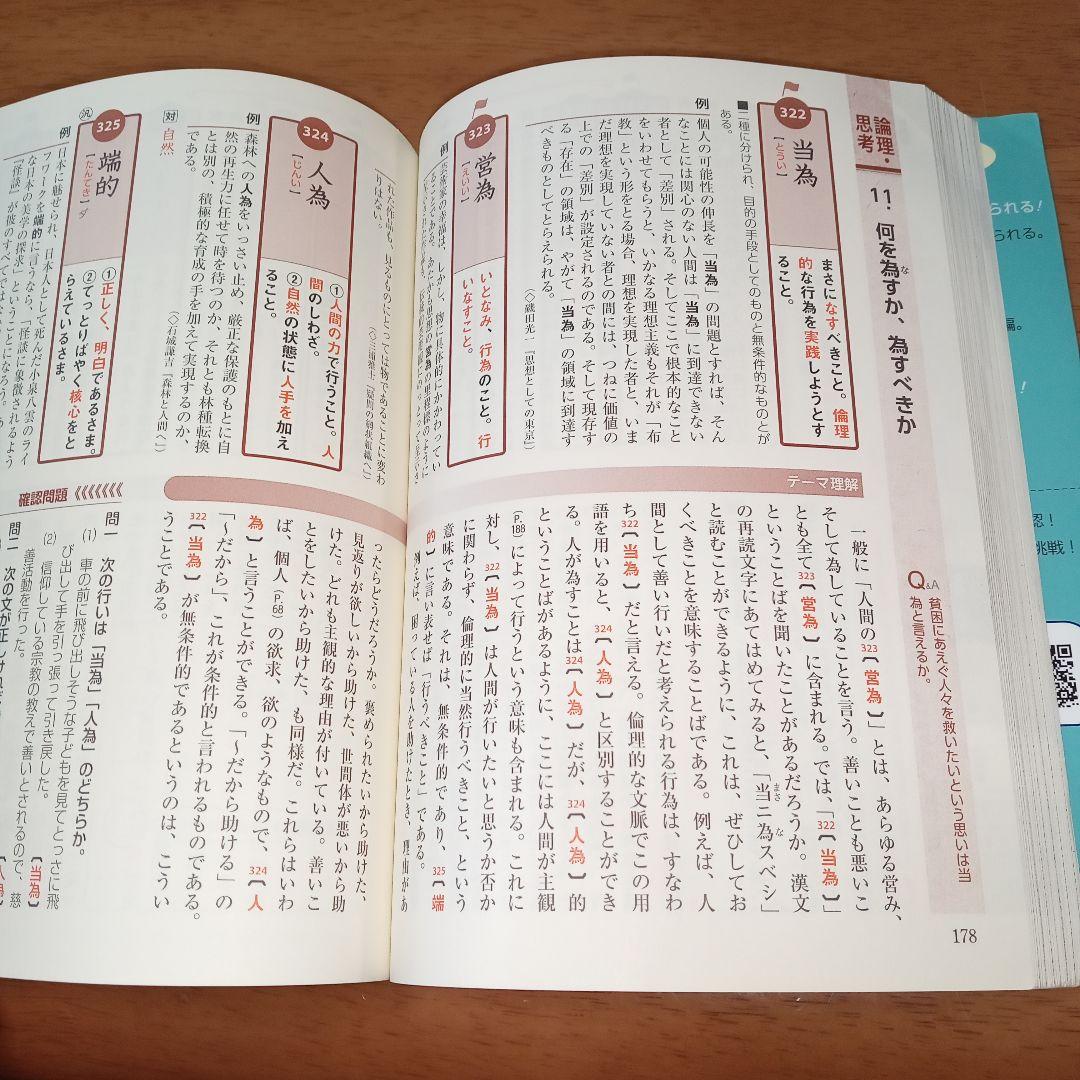 論理・思考
11. 何を為すか、為すべきか
な
Q&A 貧困にあえぐ人々を救いたいという思いは当
為と言えるか。
322
当為
【とうい】
まさになすべきこと。倫理
的な行為を実践しようとす
ること。
■二種に分けられ、目的の手段としてのものと無条件的なものとが
ある。
例 個人の可能性の伸長を「当為」の問題とすれば、そん
なことには関心のない人間は「当為」に到達できない
者として「差別」される。そしてここで根本的なこと
をいわせてもらうと、いかなる理想主義もそれが「布
教」という形をとる場合、理想を実現した者と、いま
だ理想を実現していない者との間には、つねに価値の
上での「差別」が設定されるのである。そして現存す
る「存在」の領域は、やがて「当為」の領域に到達す
べきものとしてとらえられる。
〈◇磯田光一『思想としての東京』〉
323
営為
【えいい】
いとなみ、行為のこと。行
いなすこと。
例 芸術家の幸福は、しかし、物に具体的にかかわってい
ることである。
テーマ理解
一般に「人間の323〔営為〕」とは、あらゆる営み、
そして為していることを言う。善いことも悪いこ
とも全て323〔営為〕に含まれる。では、「322〔当為〕」
ということばを聞いたことがあるだろうか。漢文
の再読文字にあてはめてみると、「当ニ為スベシ」
まさ な
と読むことができるように、これは、ぜひしてお
くべきことを意味することばである。例えば、人
間として善い行いだと考えられる行為は、すなわ
ち322〔当為〕だと言える。倫理的な文脈でこの用
語を用いると、324〔人為〕と区別することができ
る。人が為すことは324〔人為〕だが、324〔人為〕的
ということばがあるように、ここには人間が主観
(P.188)によって行うという意味も含まれる。これに
対し、322〔当為〕は人間が行いたいと思うか否か
に関わらず、倫理的に当然行うべきこと、という
意味である。それは、無条件的であり、325〔端
的〕に言い表せば「行うべきこと」である。
例えば、困っている人を助けたとき、理由があ
178
れた作品も、見るものにとっては物であることに変わ
りはない。
324
人為
【じんい】
①人間の力で行うこと。人
間のしわざ。
②自然の状態に人手を加え
ること。
例 森林への人為をいっさい止め、厳正な保護のもとに自
然の再生力に任せて時を待つのか、それとも林種転換
とは別の、積極的な育成の手を加えて実現するのか、
である。
〈◇石城謙吉『森林と人間へ』〉
対 自然
325
端的
【たんてき】ダ
①正しく、明白であるさま。
②てっとりばやく核心をと
らえているさま。
例 日本に魅せられ、日本人として死んだ小泉八雲のライ
フワークを端的に言うなら、「怪談に象徴されるよう
な日本の美学の探求」ということになろう。
ったらどうだろうか。褒められたいから助けた、
見返りが欲しいから助けた、世間体が悪いから助
けた。どれも主観的な理由が付いている。善いこ
とをしたいから助けた、も同様だ。これらはいわ
ば、個人(P.68)の欲求、欲のようなもので、324〔人
為〕と言うことができる。「〜だから助ける」の
「〜だから」、これが条件的と言われるものである。
〔当為〕が無条件的であるというのは、こうい
322
うことである。
確認問題
問一 次の行いは「当為」「人為」のどちらか。
(1) 車の前に飛び出しそうな子どもを見てとっさに飛
び出して手を引っ張って引き戻した。
〔当為〕
(2) 信仰している宗教の教えで善いとされるので、慈
善活動を行った。
〔人為〕
られる！
られる。
編。
認！
挑戦！